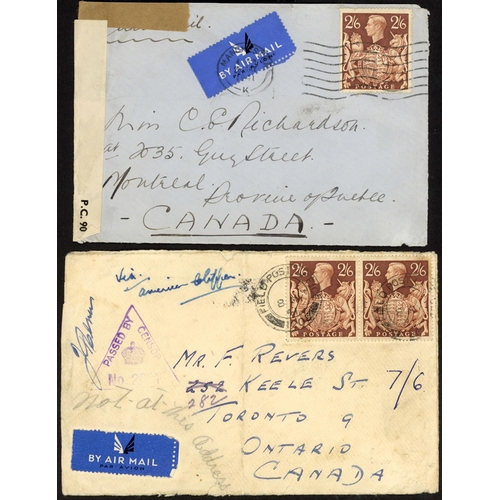 Air Mail.
BY AIR MAIL
K
2/6 2/6
POSTAGE
Miss C. E. Richardson.
at 2035. Guy Street.
Montreal. Province of Quebec
- CANADA. -
P.C. 90
Via.
american Clipper.
FIELD POST
2/6 2/6 2/6
POSTAGE POSTAGE
PASSED BY
No.
MR. F. REVERS
252 KEELE ST 7/6
282
TORONTO 9
ONTARIO
CANADA
Not-at-this address
BY AIR MAIL
PAR AVION